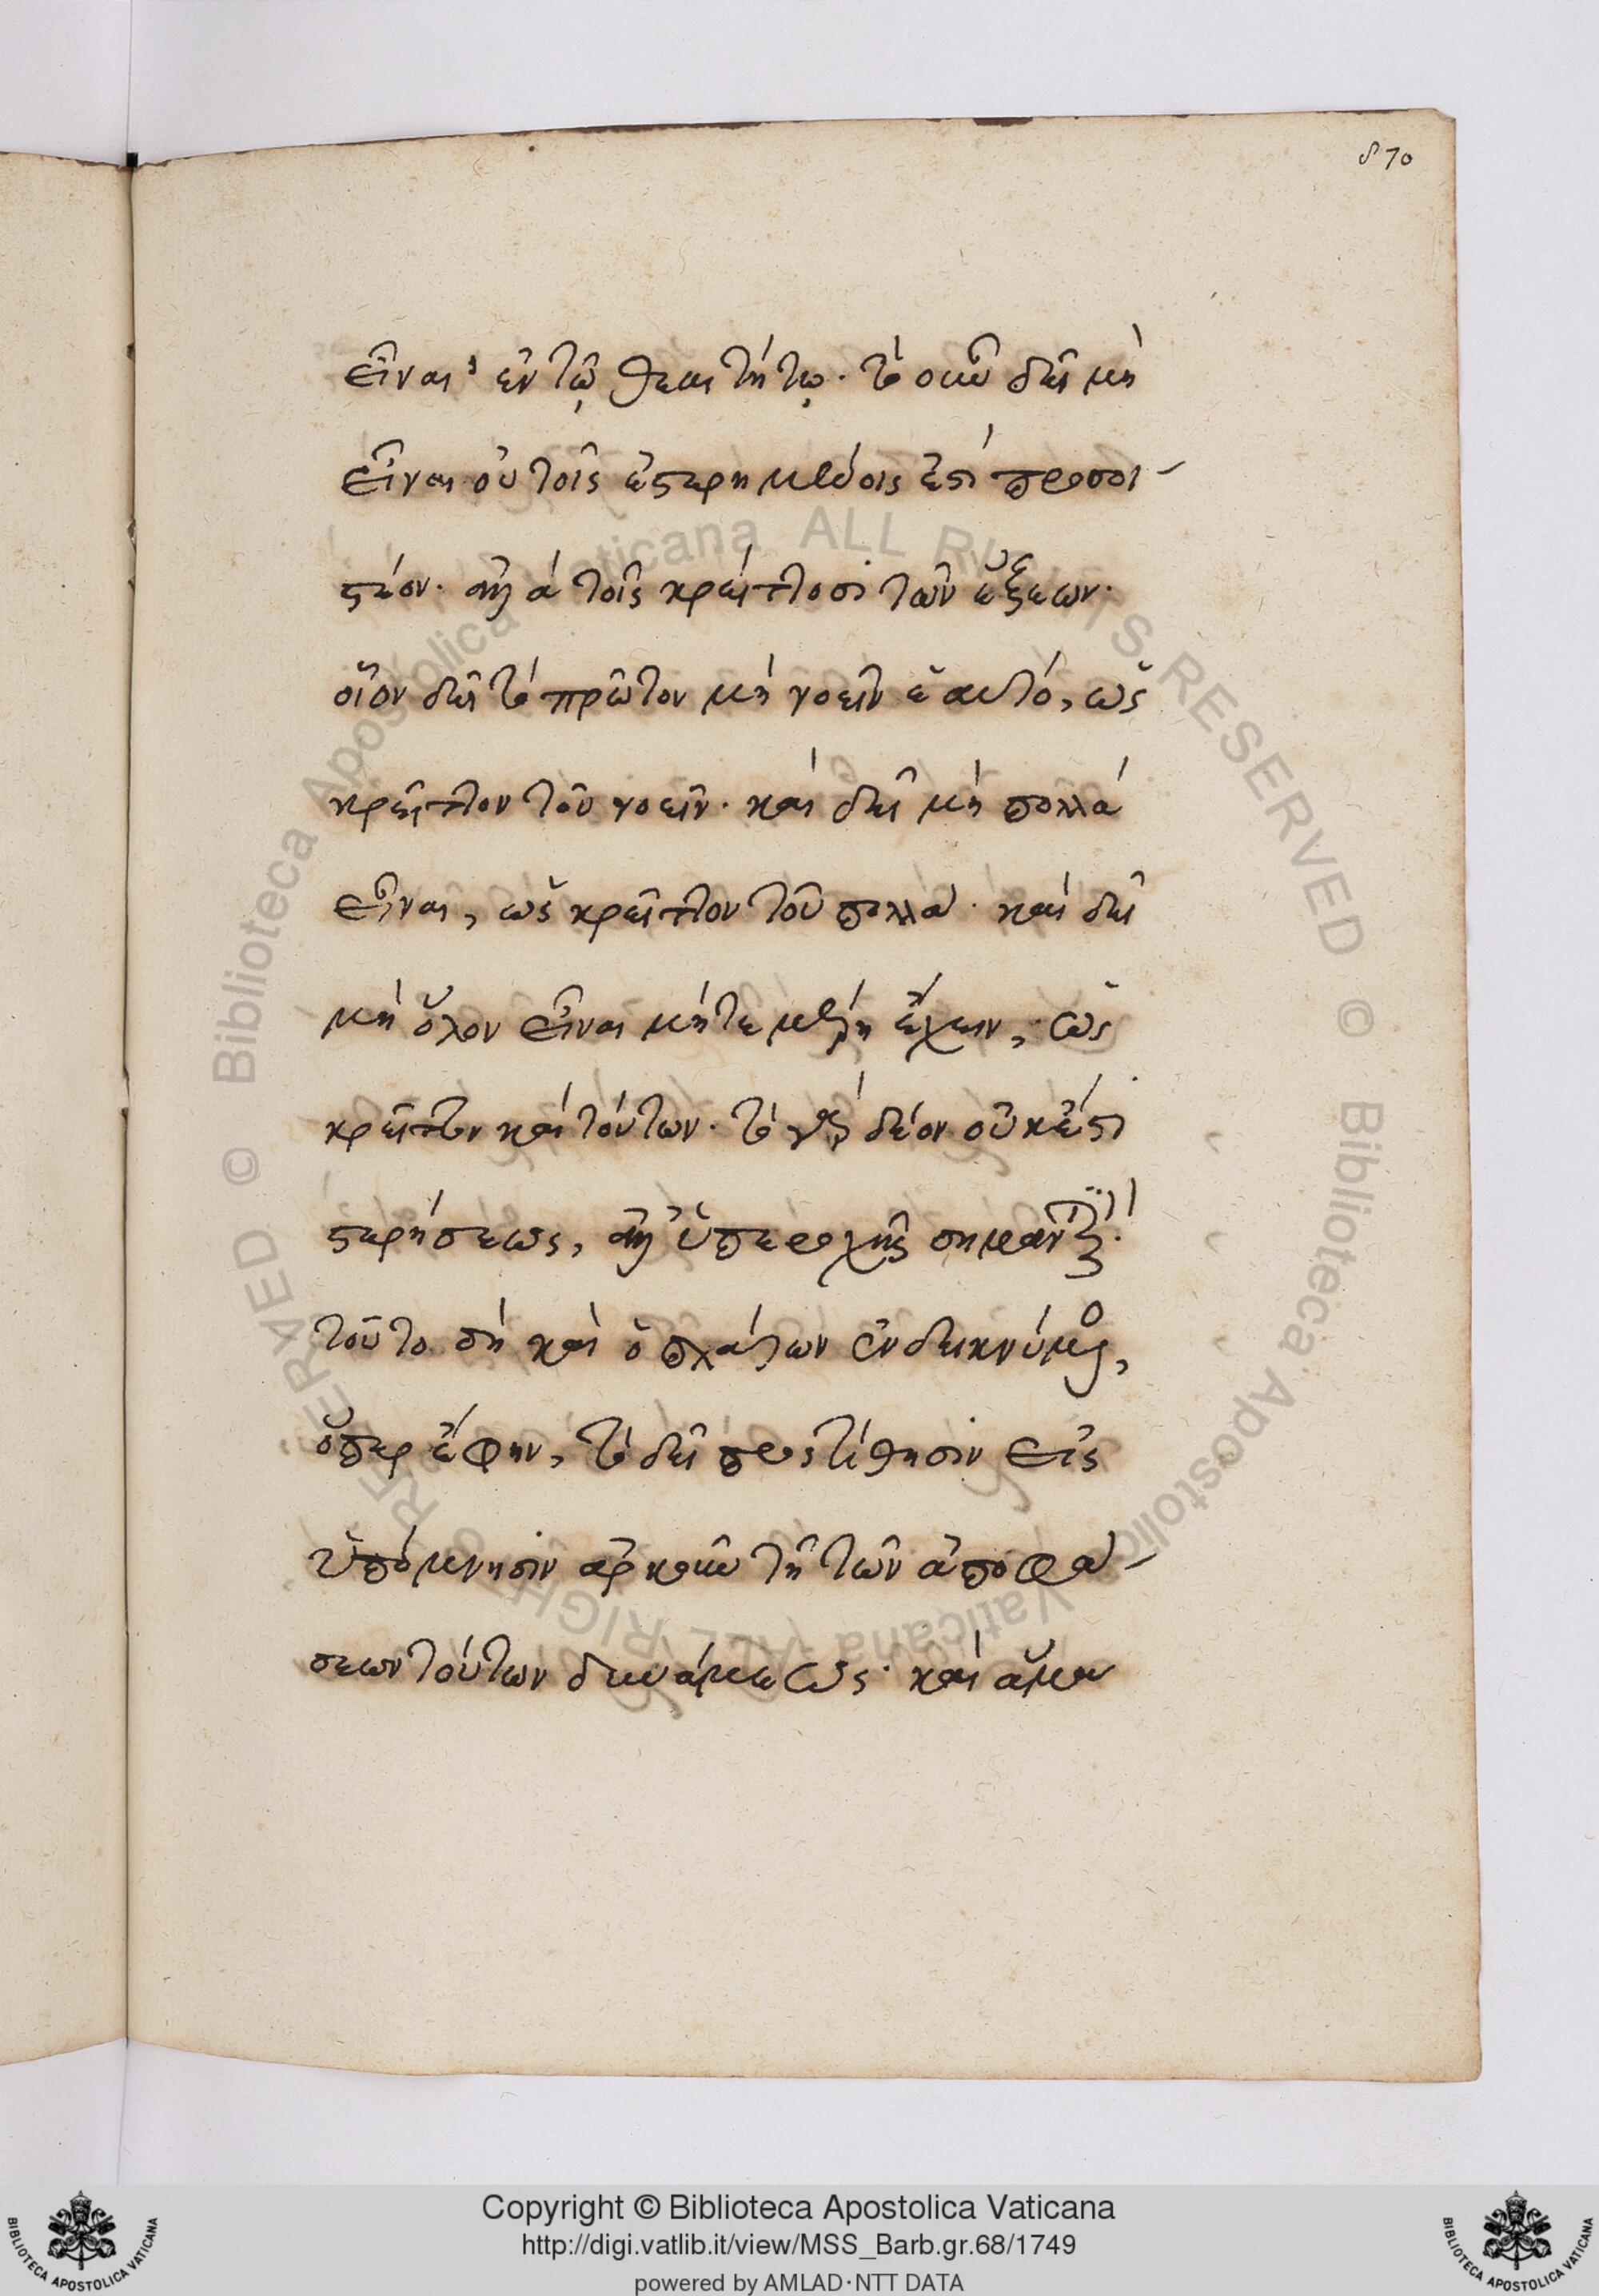 870
εἶναι ἐν τῷ θεαιτήτῳ· τὸ οὖν δεῖ μὴ
εἶναι οὐ τοῖς ἐστερημένοις ἐστὶ προσοι-
στέον· ἀλλὰ τοῖς κρείττοσι τῶν ἕξεων·
οἷον δεῖ τὸ πρῶτον μὴ νοεῖν ἑαυτό, ὡς
κρεῖττον τοῦ νοεῖν· καὶ δεῖ μὴ πολλὰ
εἶναι, ὡς κρεῖττον τοῦ πολλά· καὶ δεῖ
μὴ ὅλον εἶναι μήτε μέρη ἔχειν, ὡς
κρεῖττον καὶ τούτων· τὸ γὰρ δέον οὐκ ἔστι
στερήσεως, ἀλλ' ὑπεροχῆς σημαντικόν·
τοῦτο δὴ καὶ ὁ πλάτων ἐνδεικνύμενος,
ὅπερ ἔφην, τὸ δεῖ προστίθησιν εἰς
ὑπόμνησιν ἀρκοῦν τῆς τῶν ἀποφά-
σεων τούτων δυνάμεως· καὶ ἅμα
Copyright © Biblioteca Apostolica Vaticana
http://digi.vatlib.it/view/MSS_Barb.gr.68/1749
powered by AMLAD·NTT DATA
© Biblioteca Apostolica Vaticana ALL RIGHTS RESERVED
© Biblioteca Apostolica Vaticana ALL RIGHTS RESERVED
BIBLIOTECA APOSTOLICA VATICANA
BIBLIOTECA APOSTOLICA VATICANA